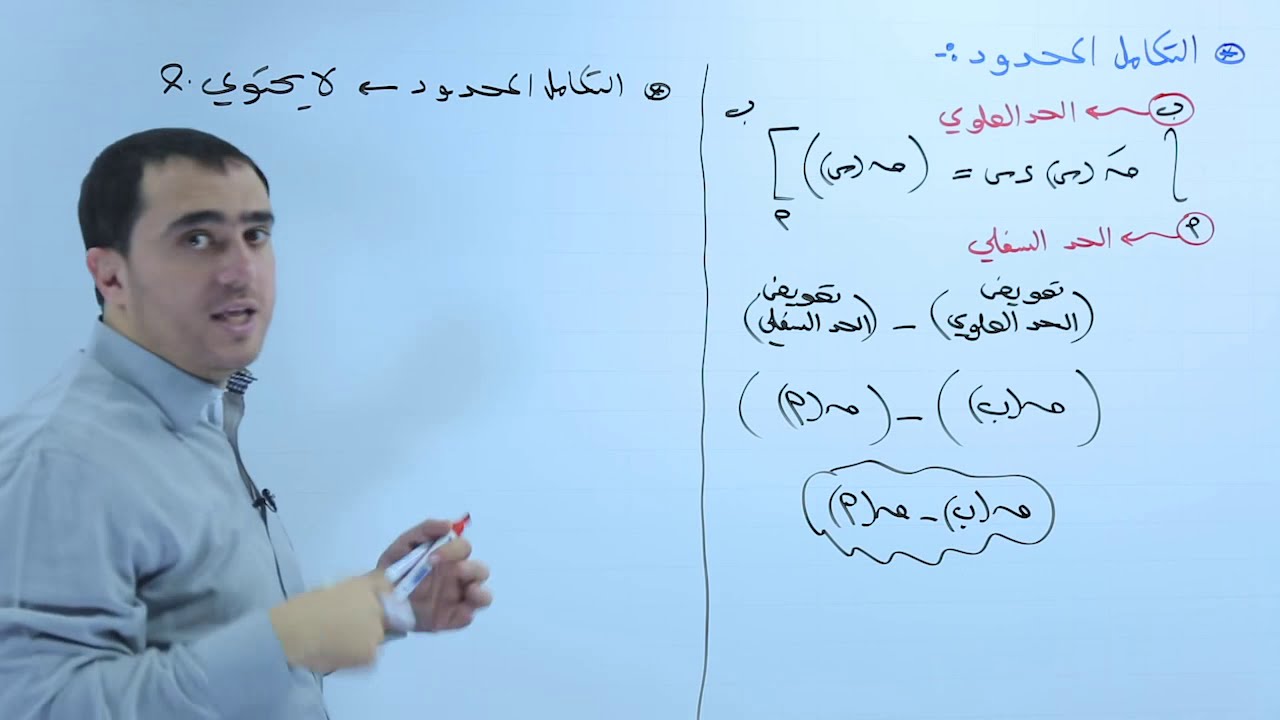 * التكامل المحدود :-
ب ← الحد العلوي
∫ قَ (س) ءس = (ق (س)) ] ب
م
م ← الحد السفلي
(تعويض الحد العلوي) - (تعويض الحد السفلي)
(ق (ب)) - (ق (م))
ق (ب) - ق (م)
* التكامل المحدود ← لا يحتوي .